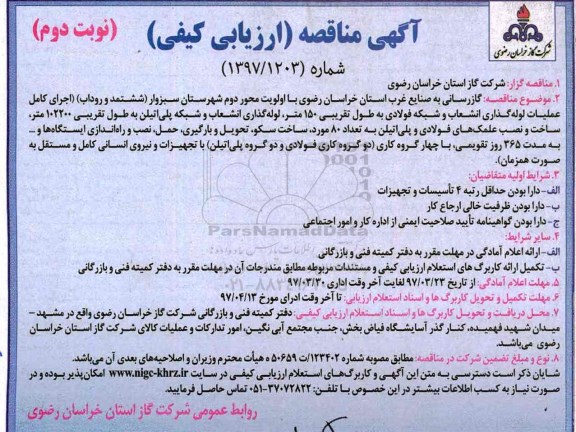 شرکت گاز خراسان رضوی
آگهی مناقصه (ارزیابی کیفی)
(نوبت دوم)
شماره (۱۳۹۷/۱۲۰۳)
۱. مناقصه گزار: شرکت گاز استان خراسان رضوی
۲. موضوع مناقصه: گازرسانی به صنایع غرب استان خراسان رضوی با اولویت محور دوم شهرستان سبزوار (ششتمد و روداب) (اجرای کامل
عملیات لوله‌گذاری انشعاب و شبکه فولادی به طول تقریبی ۱۵۰ متر، لوله‌گذاری انشعاب و شبکه پلی‌اتیلن به طول تقریبی ۱۰۲۲۰۰ متر،
ساخت و نصب علمک‌های فولادی و پلی‌اتیلن به تعداد ۸۰ مورد، ساخت سکو، تحویل و بارگیری، حمل، نصب و راه‌اندازی ایستگاه‌ها و ...
به مدت ۳۶۵ روز تقویمی، با چهار گروه کاری (دو گروه کاری فولادی و دو گروه پلی‌اتیلن) با تجهیزات و نیروی انسانی کامل و مستقل به
صورت همزمان).
۳. شرایط اولیه متقاضیان:
الف- دارا بودن حداقل رتبه ۴ تأسیسات و تجهیزات
ب- دارا بودن ظرفیت خالی ارجاع کار
ج- دارا بودن گواهینامه تأیید صلاحیت ایمنی از اداره کار و امور اجتماعی
۴. سایر شرایط:
الف- ارائه اعلام آمادگی در مهلت مقرر به دفتر کمیته فنی و بازرگانی
ب- تکمیل ارائه کاربرگ های استعلام ارزیابی کیفی و مستندات مربوطه مطابق مندرجات آن در مهلت مقرر به دفتر کمیته فنی و بازرگانی
۵. مهلت اعلام آمادگی: از تاریخ ۹۷/۰۳/۲۳ لغایت آخر وقت اداری ۹۷/۰۳/۳۰
۶. مهلت تکمیل و تحویل کاربرگ ها و اسناد استعلام ارزیابی: تا آخر وقت اداری مورخ ۹۷/۰۴/۱۳
۷. محل دریافت و تحویل کاربرگ ها و اسناد استعلام ارزیابی کیفی: دفتر کمیته فنی و بازرگانی شرکت گاز خراسان رضوی واقع در مشهد -
میدان شهید فهمیده، کنار گذر آسایشگاه فیاض بخش، جنب مجتمع آبی نگین، امور تدارکات و عملیات کالای شرکت گاز استان خراسان
رضوی می‌باشد.
۸. نوع و مبلغ تضمین شرکت در مناقصه: مطابق مصوبه شماره ۱۲۳۴۰۲/ت ۵۰۶۵۹ ه هیأت محترم وزیران و اصلاحیه‌های بعدی آن می‌باشد.
شایان ذکر است دسترسی به متن این آگهی و کاربرگ‌های استعلام ارزیابی کیفی در سایت www.nigc-khrz.ir امکان‌پذیر بوده و در
صورت نیاز به کسب اطلاعات بیشتر در این خصوص با تلفن: ۳۷۰۷۲۸۲۲-۰۵۱ تماس حاصل فرمایید.
روابط عمومی شرکت گاز استان خراسان رضوی
ParsNamadData